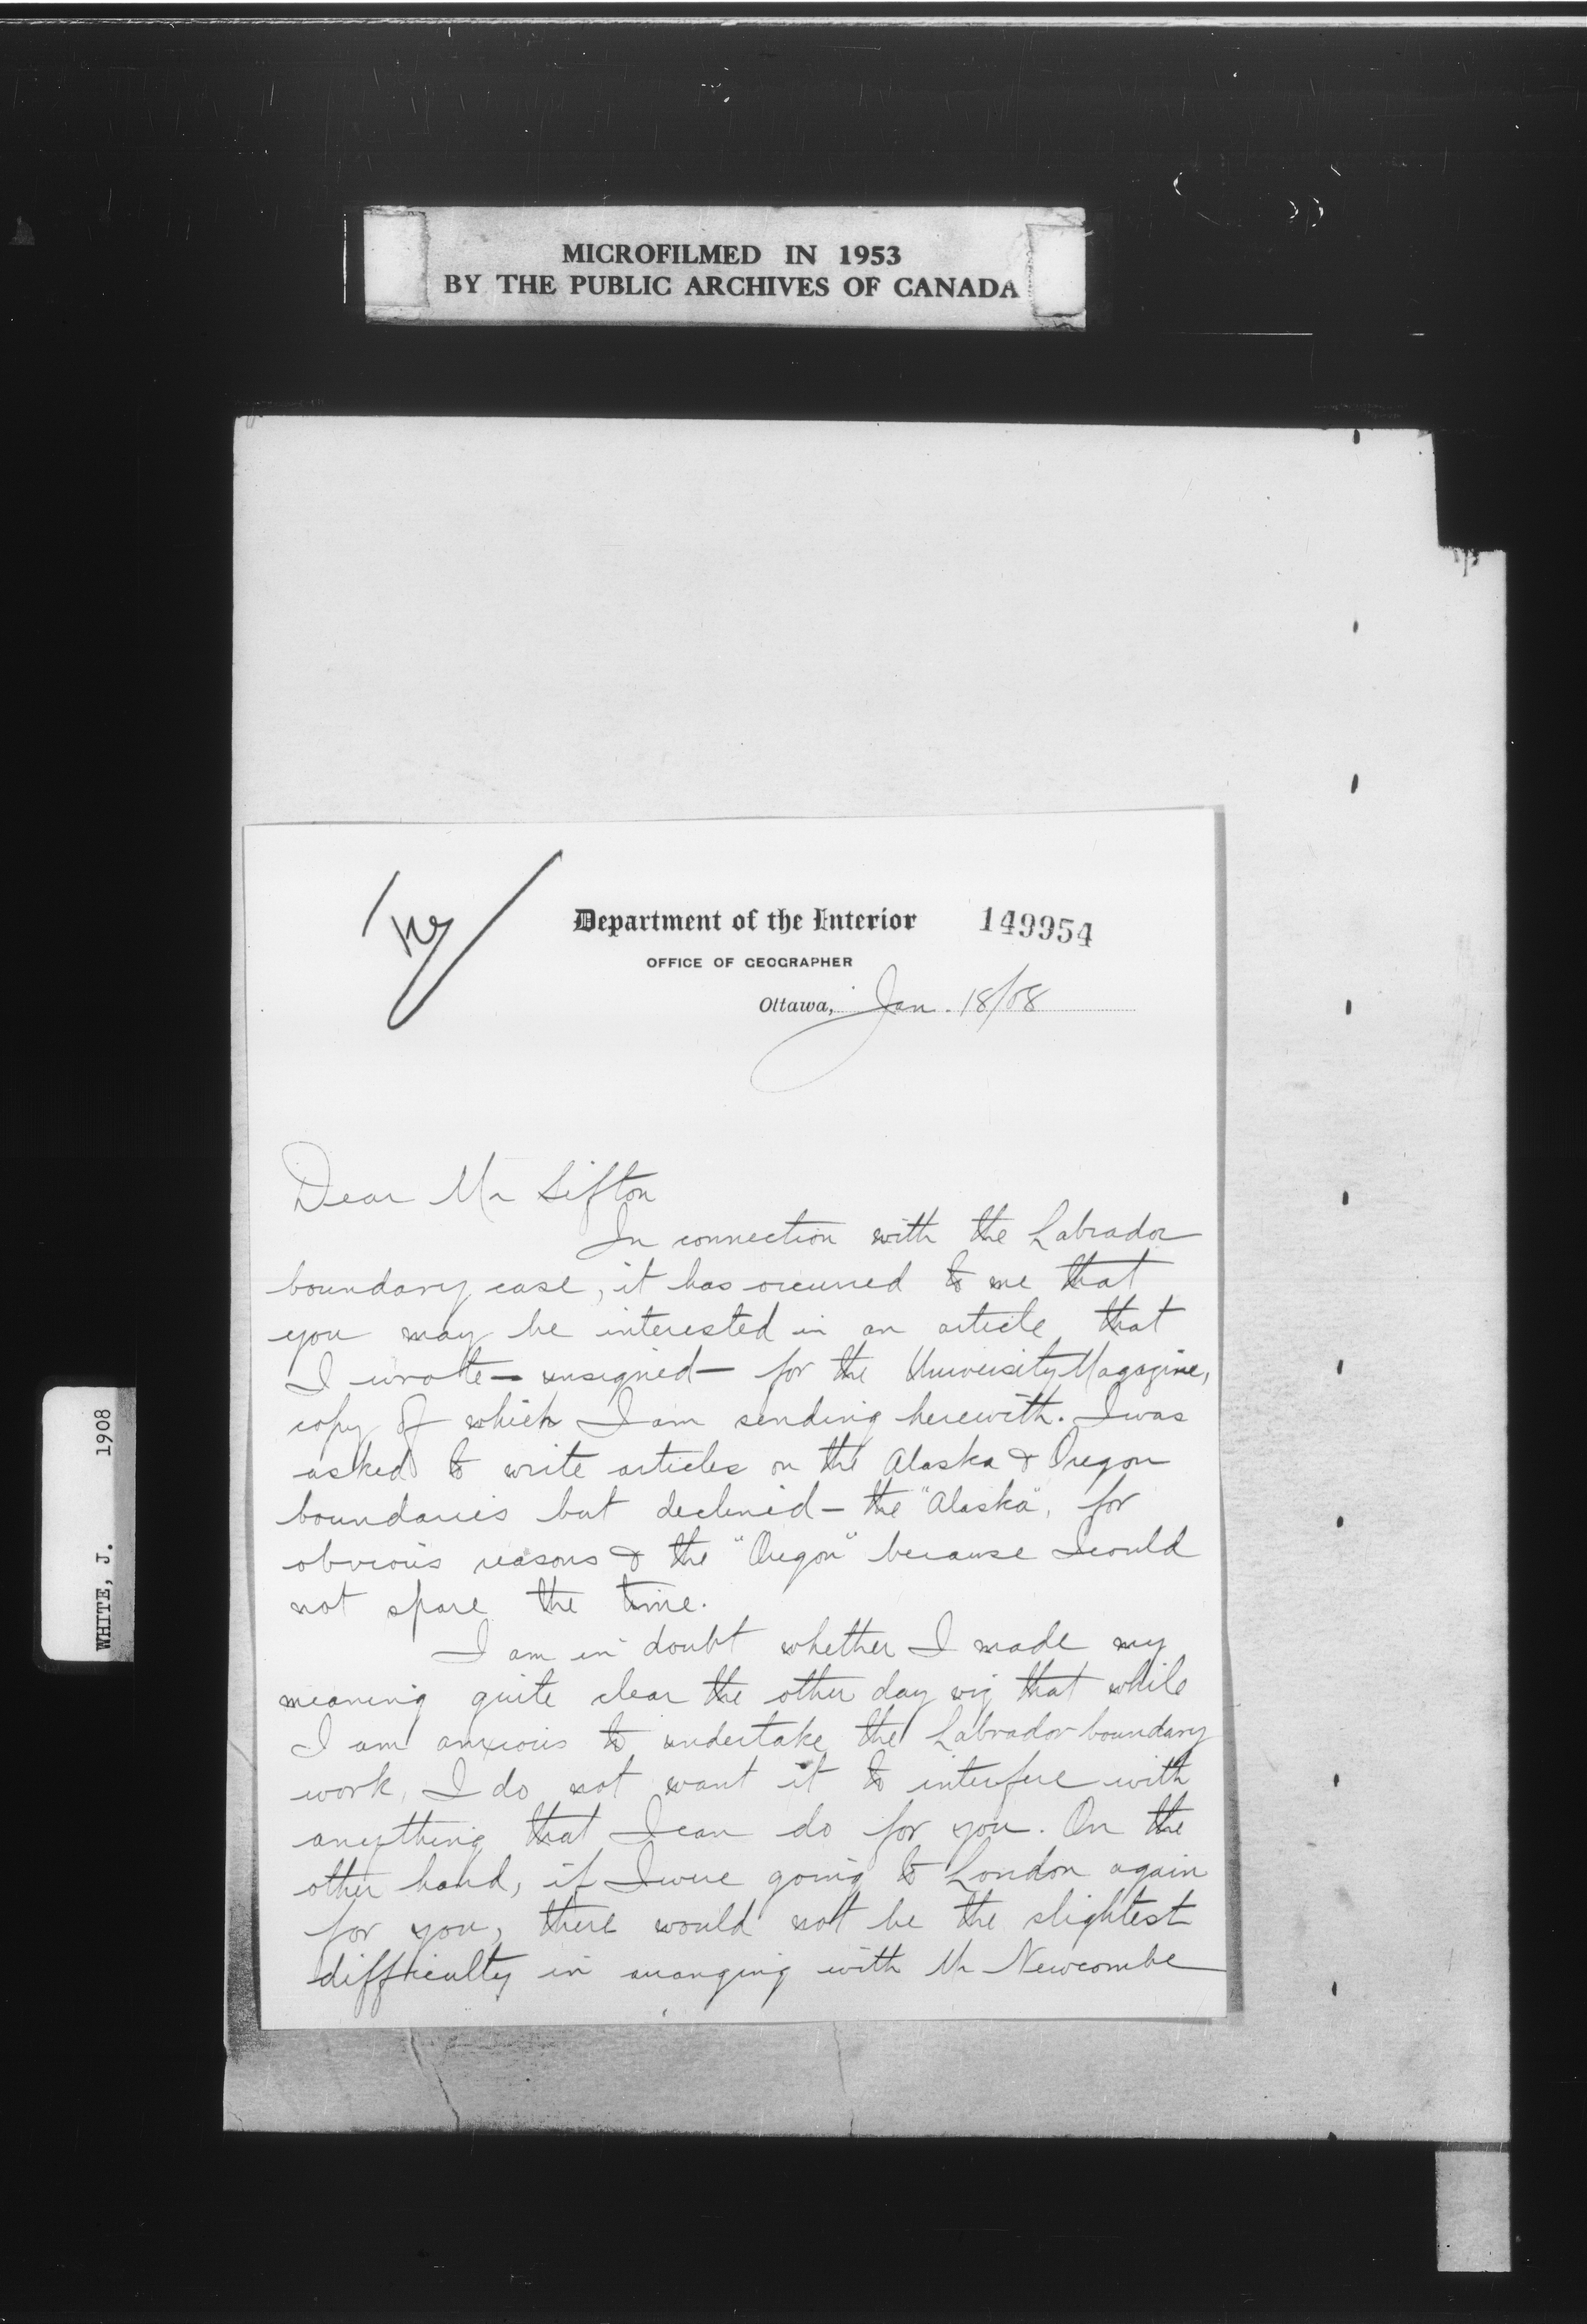 MICROFILMED IN 1953
BY THE PUBLIC ARCHIVES OF CANADA
Department of the Interior
149954
OFFICE OF GEOGRAPHER
Ottawa, Jan. 18/08
Dear Mr Sifton
In connection with the Labrador
boundary case, it has occurred to me that
you may be interested in an article that
I wrote - unsigned - for the University Magazine,
copy of which I am sending herewith. I was
asked to write articles on the Alaska & Oregon
boundaries but declined - the "Alaska", for
obvious reasons & the "Oregon" because I could
not spare the time.
I am in doubt whether I made my
meaning quite clear the other day viz that while
I am anxious to undertake the Labrador boundary
work, I do not want it to interfere with
anything that I can do for you. On the
other hand, if I were going to London again
for you, there would not be the slightest
difficulty in arranging with Mr Newcombe
WHITE, J. 1908